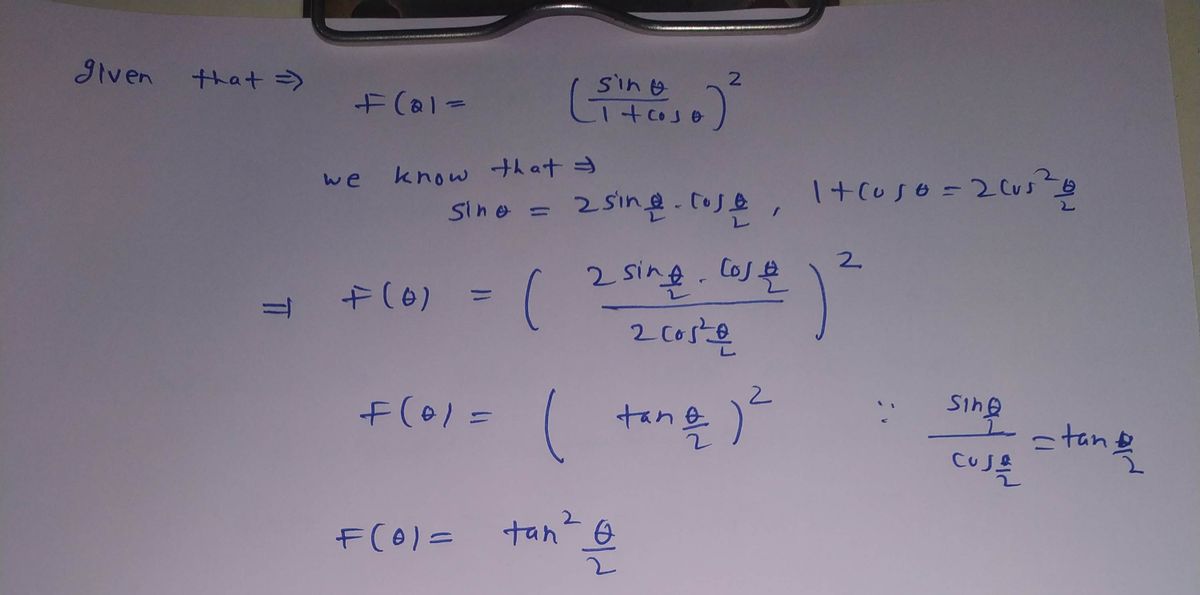 given that ⇒
F(θ) = (sinθ / 1+cosθ)²
we know that ⇒
sinθ = 2 sin θ/2 . cos θ/2 , 1+cosθ = 2 cos² θ/2
⇒ F(θ) = ( 2 sin θ/2 . cos θ/2 / 2 cos² θ/2 )²
F(θ) = ( tan θ/2 )² ∵ sin θ/2 / cos θ/2 = tan θ/2
F(θ) = tan² θ/2